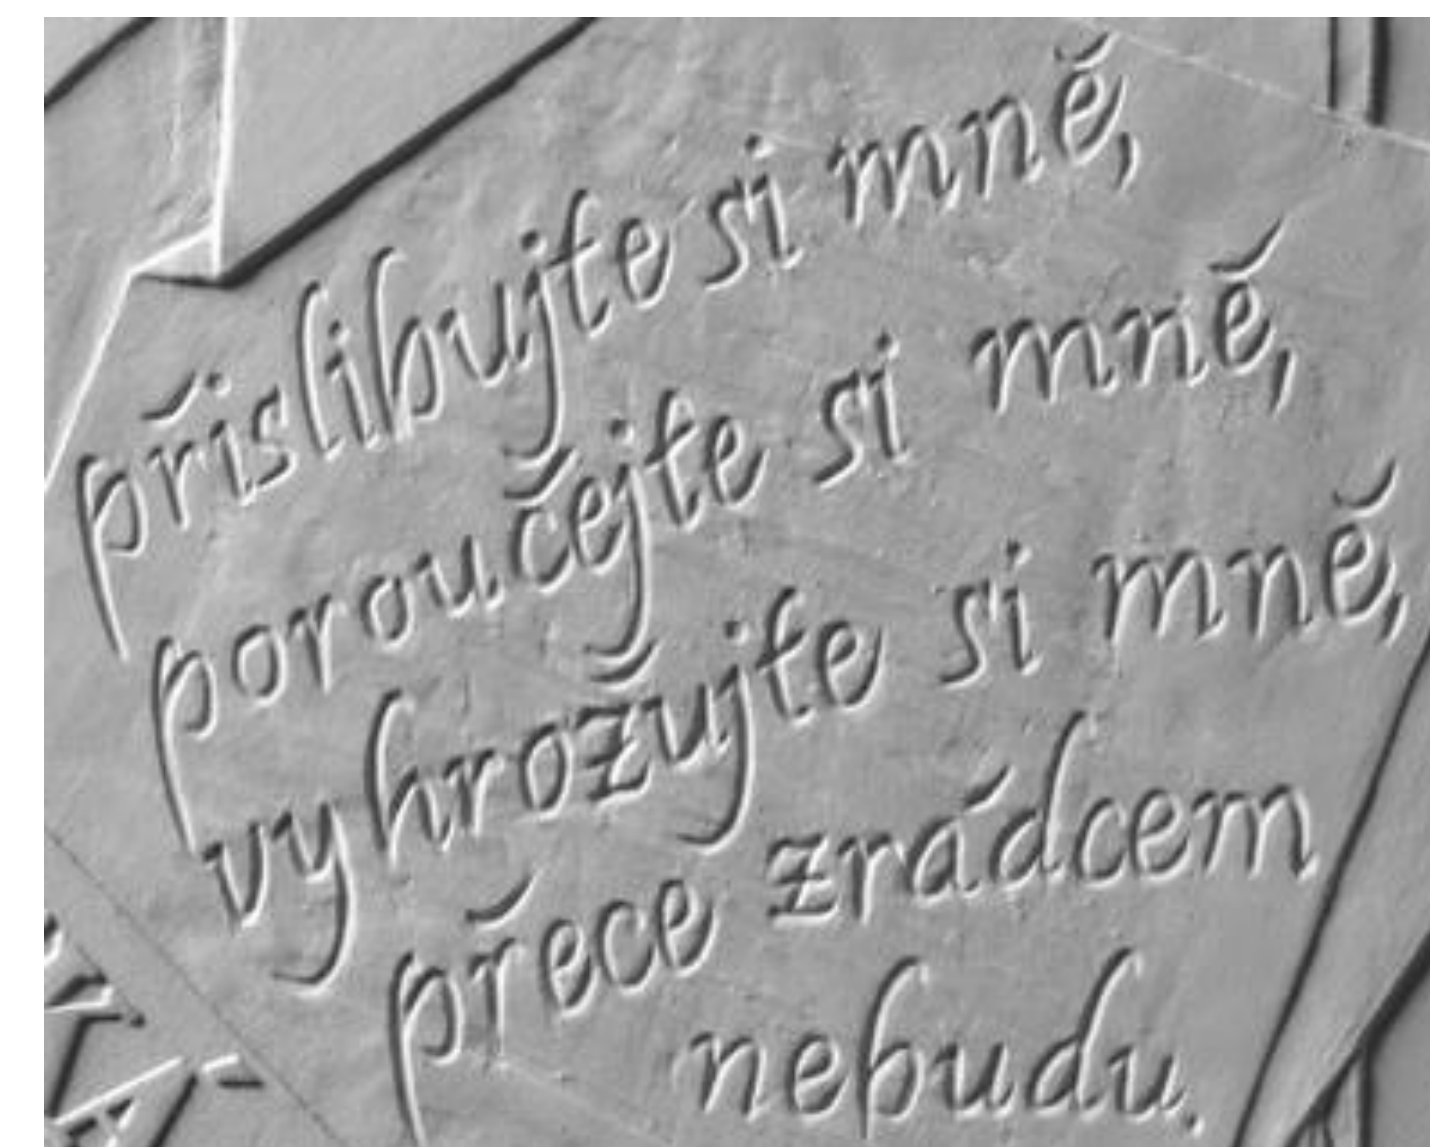 přislibujte si mně,
poroučejte si mně,
vyhrožujte si mně,
přece zrádcem
nebudu.